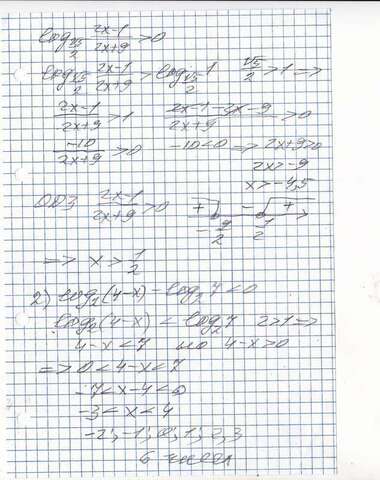 log_{√5/2} (2x-1)/(2x+9) > 0
log_{√5/2} (2x-1)/(2x+9) > log_{√5/2} 1   √5/2 > 1 =>
(2x-1)/(2x+9) > 1   (2x-1-2x-9)/(2x+9) > 0
-10/(2x+9) > 0   -10<0 => 2x+9>0
2x>-9
x>-4,5
ОДЗ (2x-1)/(2x+9) > 0   + - +
-9/2   1/2
=> x > 1/2
2) log_2(4-x) - log_2 7 < 0
log_2(4-x) < log_2 7   2>1 =>
4-x<7 но 4-x>0
=> 0<4-x<7
-7<x-4<0
-3<x<4
-2; -1; 0; 1; 2; 3
6 чисел